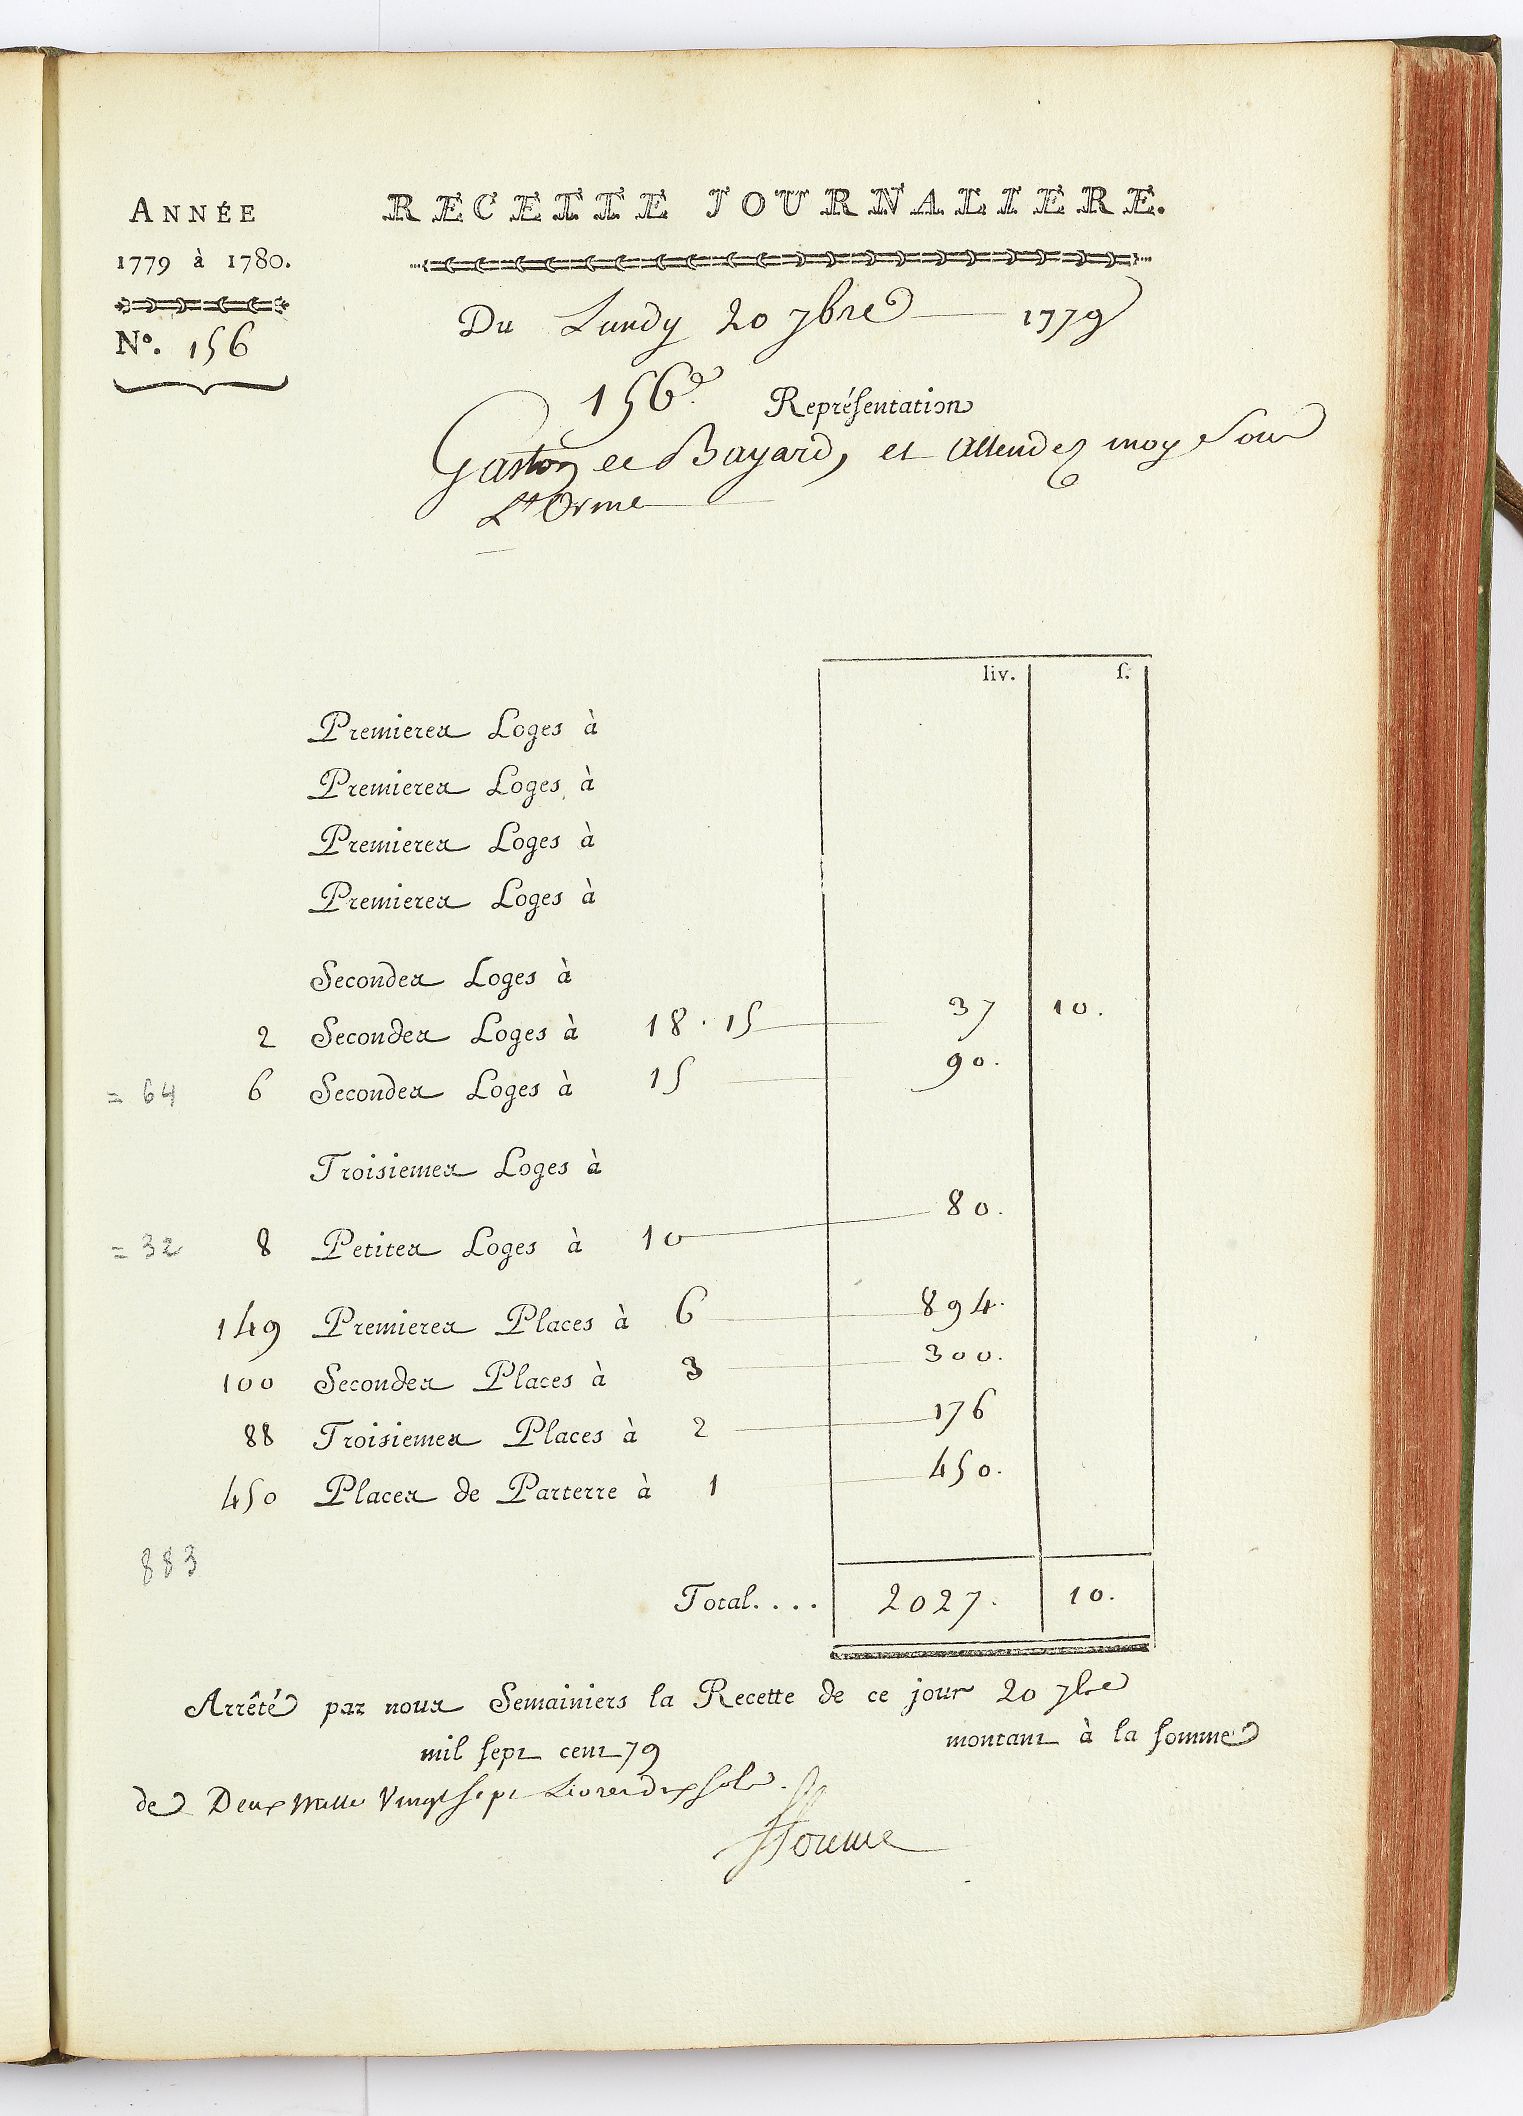 ANNÉE
1779 à 1780.
N°. 156
RECETTE JOURNALIERE.
Du Lundy 20 7bre 1779
156e. Représentation
Gaston et Bayard, et Attendez moy Sous
L'Orme
liv. s.
Premieres Loges à
Premieres Loges à
Premieres Loges à
Premieres Loges à
Secondes Loges à
2 Secondes Loges à 18. 15 37 10.
= 64 6 Secondes Loges à 15 90.
Troisiemes Loges à
= 32 8 Petites Loges à 10 80.
149 Premieres Places à 6 894.
100 Secondes Places à 3 300.
88 Troisiemes Places à 2 176
450 Places de Parterre à 1 450.
883
Total.... 2027. 10.
Arrêté par nous Semainiers la Recette de ce jour 20 7bre
mil sept cent 79 montant à la somme
de Deux Mille Vingt sept Livres dix sols.